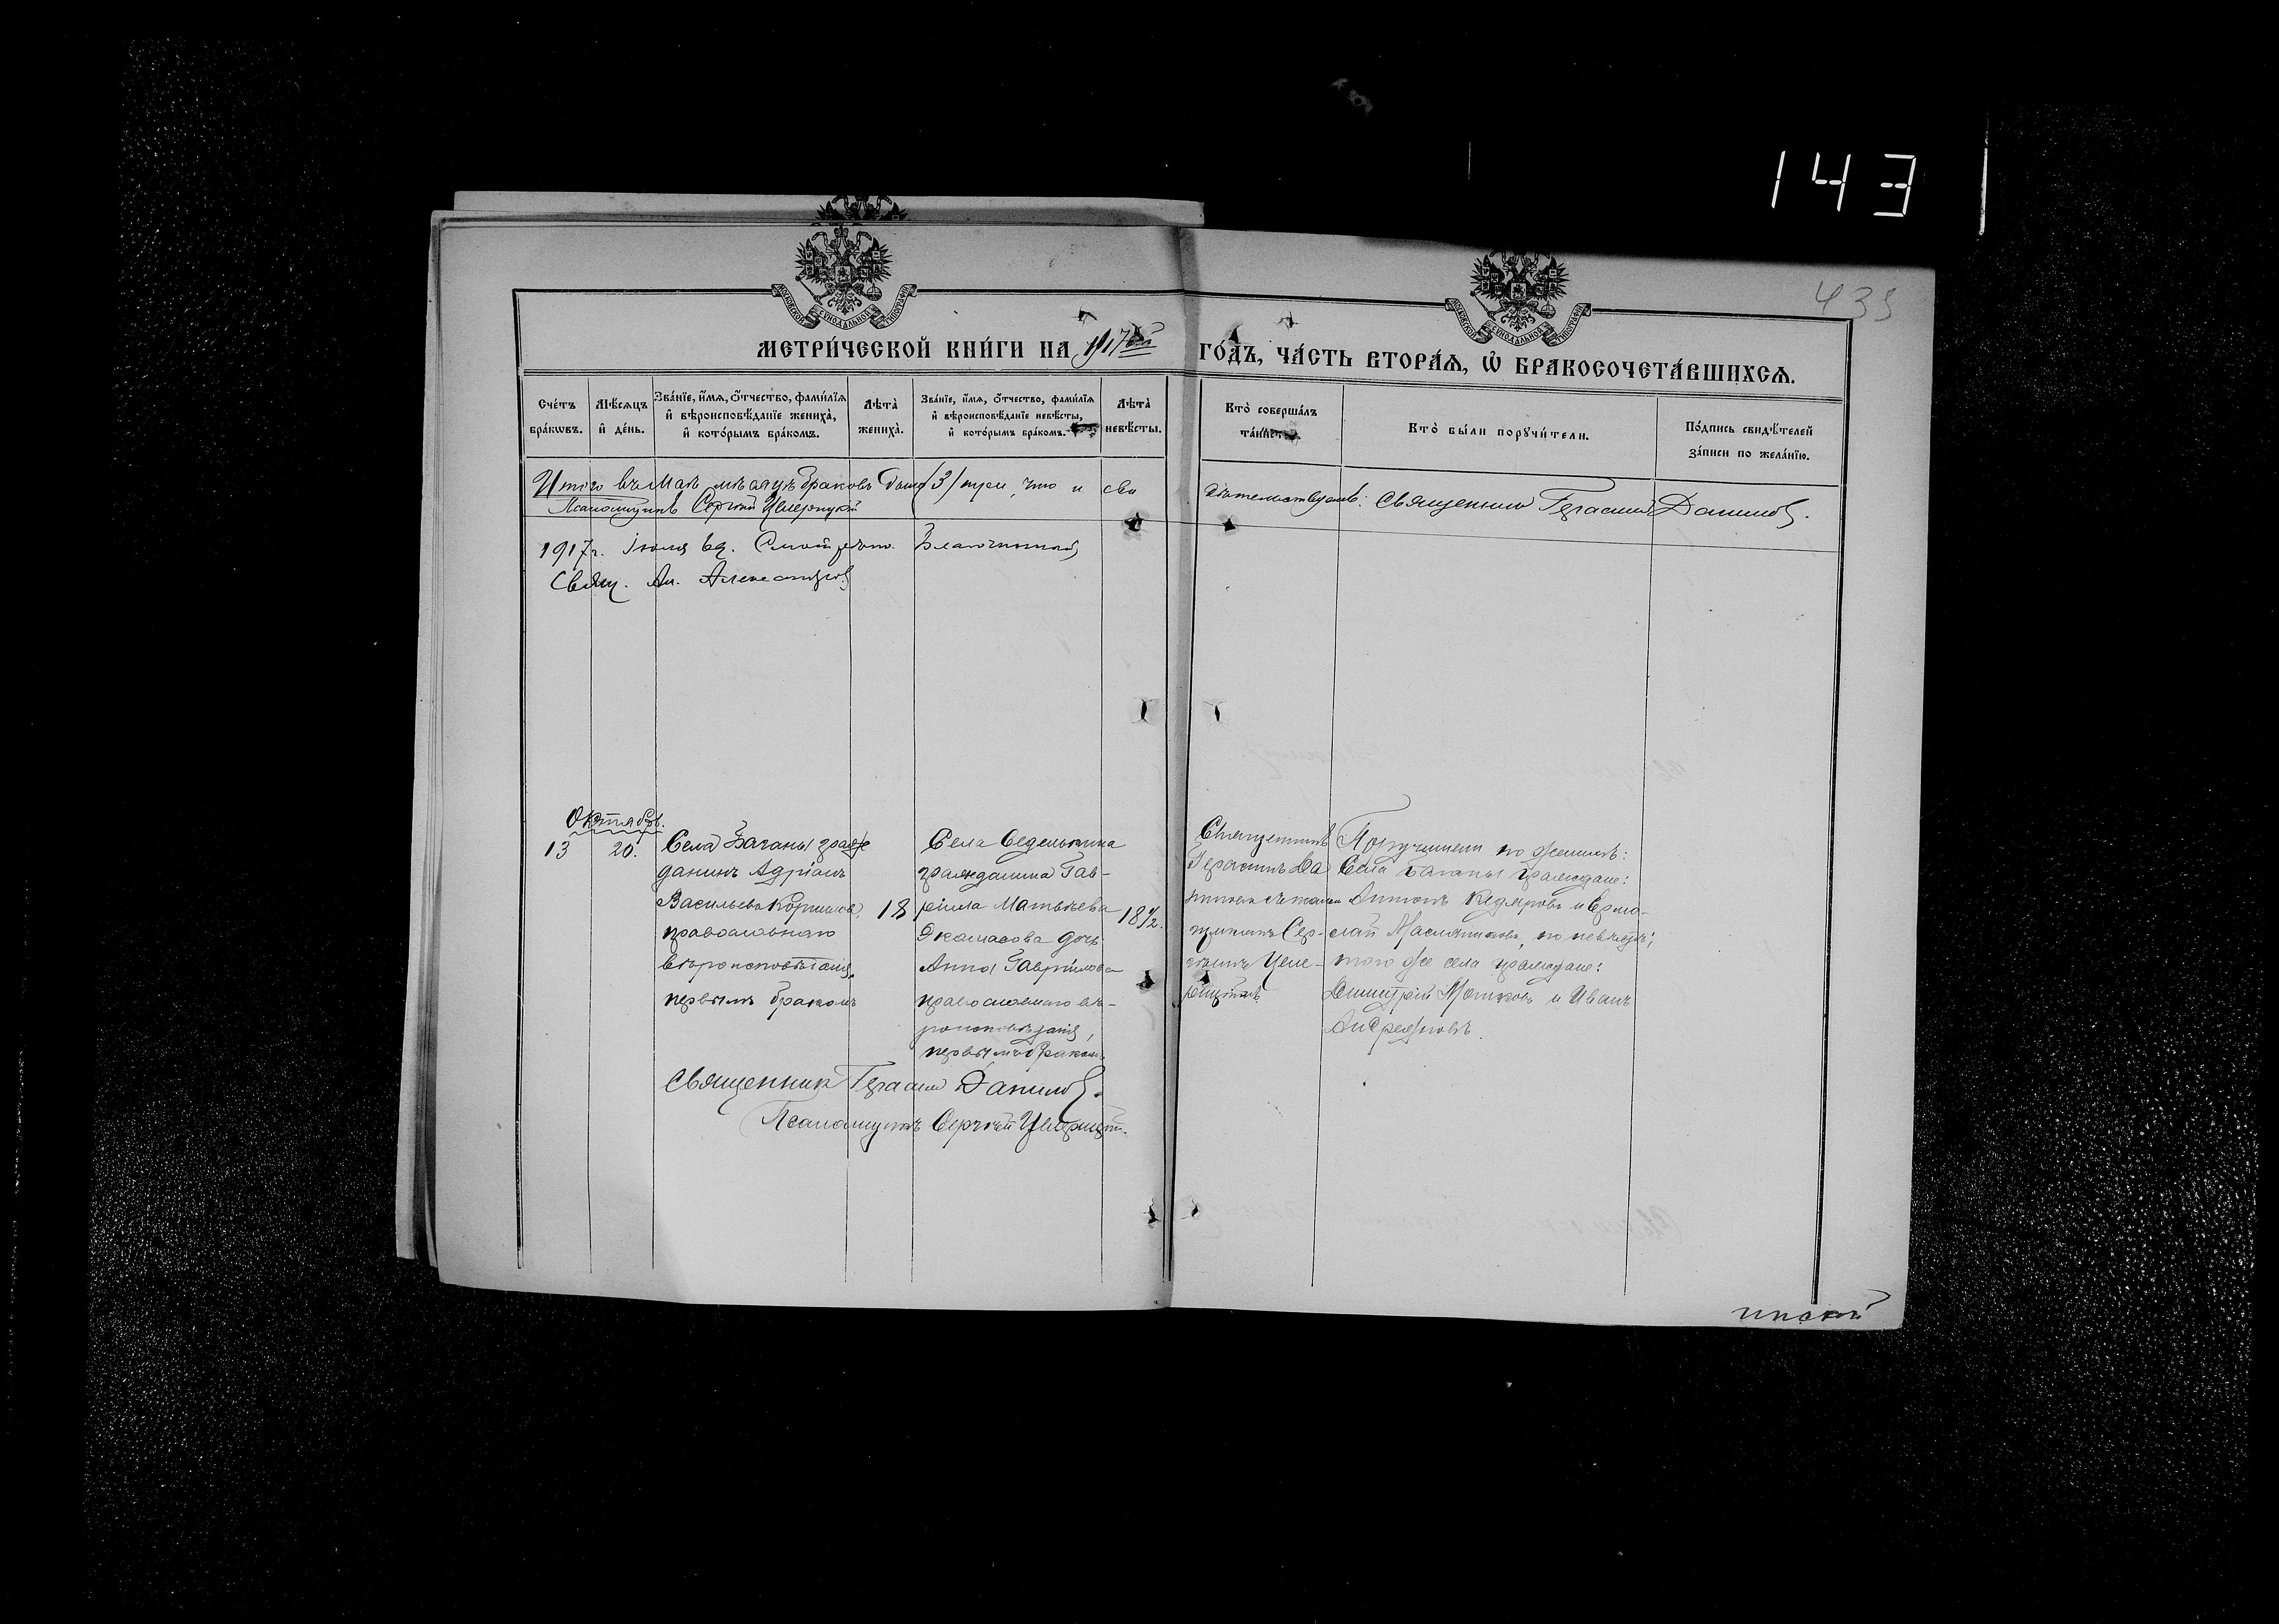 143
435
МЕТРИ́ЧЕСКОЙ КНИ́ГИ НА 1917ый ГО́ДЪ, ЧА́СТЬ ВТОРА́Ѧ, Ѡ҆ БРАКОСОЧЕТА́ВШИХСѦ.
Сче́тъ бра́кѡвъ.
Мѣ́сѧцъ и҆ де́нь.
Зва́нїе, и҆́мѧ, ѻ҆́тчество, фами́лїѧ
и҆ вѣроисповѣ́данїе жениха̀,
и҆ кото́рымъ бра́комъ.
Лѣта̀ жениха̀.
Зва́нїе, и҆́мѧ, ѻ҆́тчество, фами́лїѧ
и҆ вѣроисповѣ́данїе невѣ́сты,
и҆ кото́рымъ бра́комъ.
Лѣта̀ невѣ́сты.
Кто̀ соверша́лъ
Кто̀ бы́ли порꙋчи́тели.
По́дпись свидѣ́телей
за́писи по жела́нїю.
Итого въ Маѣ мѣсяцѣ браковъ было (3) три, что и сви
дѣтельствуемъ: Священникъ Герасимъ Даниловъ.
Псаломщикъ Сергѣй
1917 г. Іюля Смотрѣлъ Благочинный
Свящ. Ал. Александровъ
Октябрь.
13
20.
Села Баганы граж
данинъ Адріанъ
Васильевъ
православнаго
вѣроисповѣданія,
первымъ бракомъ
18
Села Седелькина
гражданина Гав-
ріила Матвѣева
дочь
Анна Гаврилова
православнаго вѣ-
роисповѣданія,
первымъ бракомъ
18½.
Священникъ
Герасимъ Да
ниловъ съ псалом
щикомъ Сер-
гѣемъ
Поручители по женихѣ:
Села Баганы граждане:
Антонъ Кедяровъ и Ермо-
лай Масленниковъ, по невѣстѣ;
того же села граждане:
Димитрій и Иванъ
Андреяновъ.
Священникъ Герасимъ Даниловъ.
Псаломщикъ Сергѣй